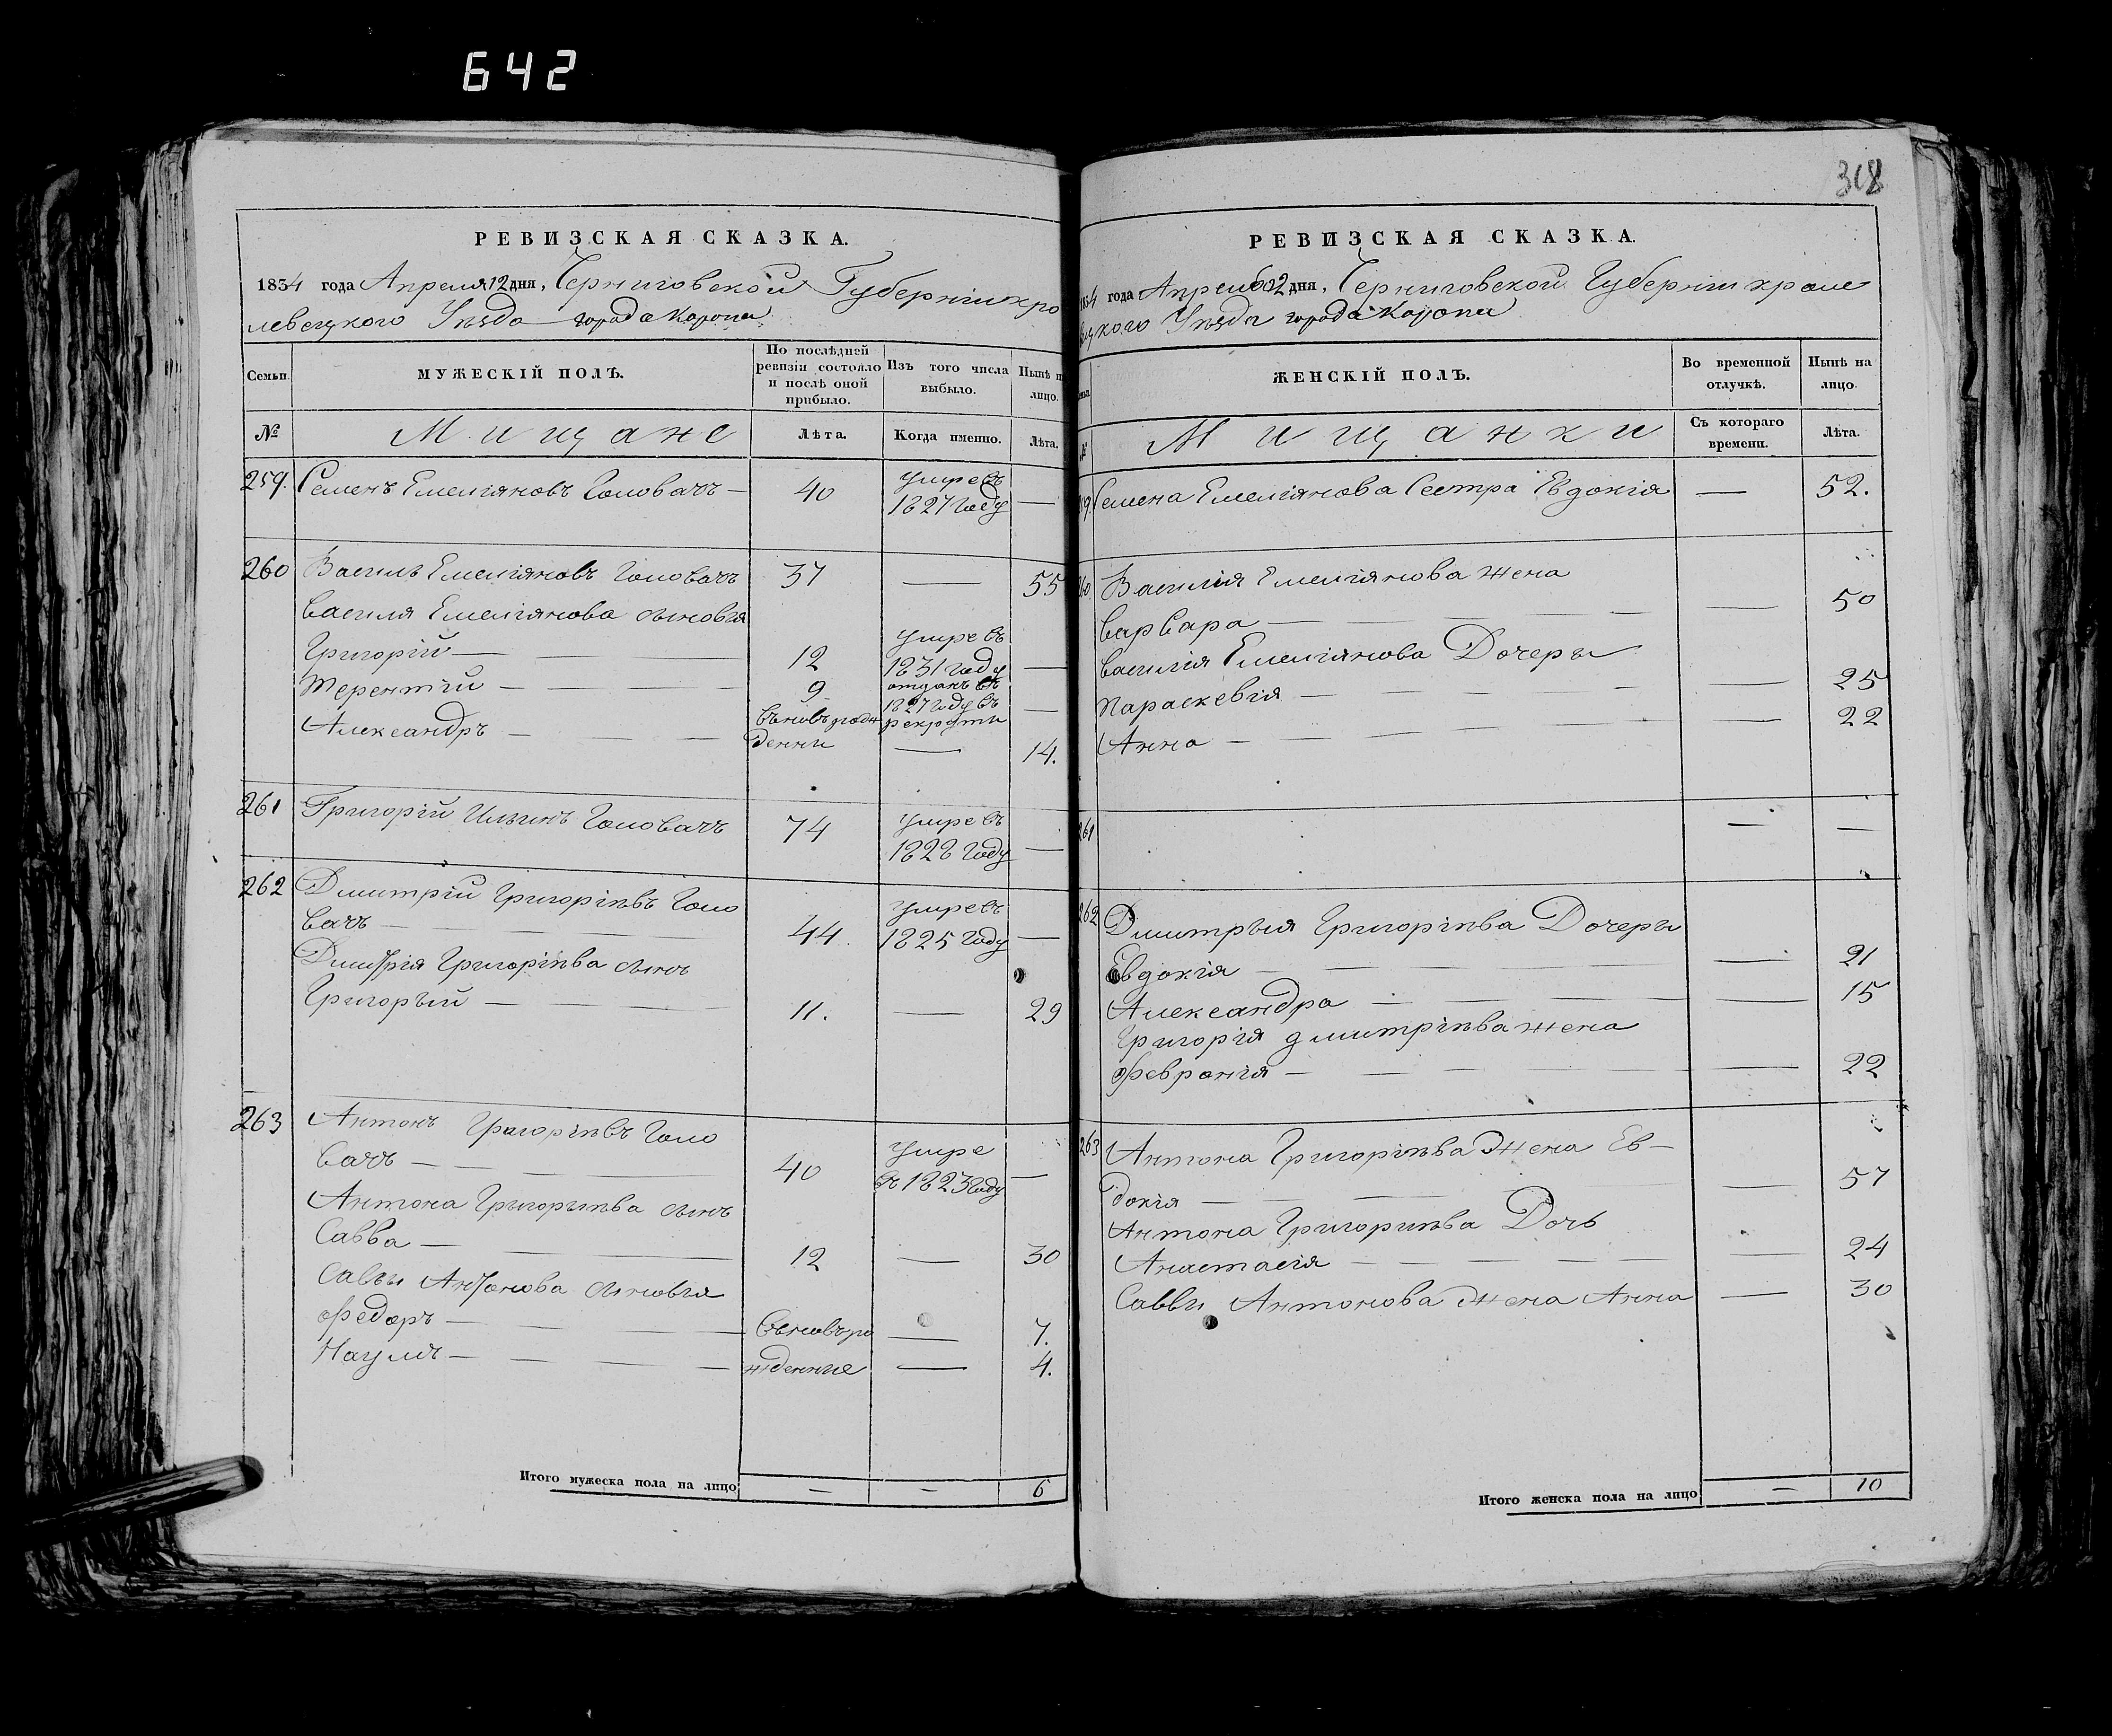 642
РЕВИЗСКАЯ СКАЗКА.
1834 года Апреля 12 дня, Черниговской Губерніи кро
левецкого Уѣзда города Коропа
Семьи. МУЖЕСКІЙ ПОЛЪ. По послѣдней ревизіи состояло и послѣ оной прибыло. Изъ того числа выбыло. Нынѣ на лицо.
№ Мищане Лѣта. Когда именно. Лѣта.
259. Семенъ Емеліяновъ Головачъ — 40 умре въ 1827 году —
260 Василь Емеліяновъ Головачъ 37 — 55
Василя Емеліянова сыновья
Григорій — 12 умре въ 1831 году —
Терентій — 9 отданъ въ 1827 году въ рекруты —
Александръ — вновь рож
денны — 14.
261 Григорій Ильинъ Головачъ 74 умре въ 1828 году —
262 Дмитрій Григоріевъ Голо
вачъ — 44. умре въ 1825 году —
Дмитрія Григоріева сынъ
Григорый — 11. — 29
263 Антонъ Григоріевъ Голо
вачъ — 40 умре в 1823 году —
Антона Григорьева сынъ
Савва — 12 — 30
Саввы Антонова сыновья
Федоръ — вновь ро — 7.
Наумъ — жденние — 4.
Итого мужеска пола на лицо — — 6
318
РЕВИЗСКАЯ СКАЗКА.
1834 года Апреля 12 дня, Черниговской Губерніи кроле
вецкого Уѣзда города Коропа
ЖЕНСКІЙ ПОЛЪ. Во временной отлучкѣ. Нынѣ на лицо.
№ Мищанки Съ котораго времени. Лѣта.
259. Семена Емеліянова Сестра Евдокія — 52.
260 Василія Емеліянова жена
Варвара — — 50
Василія Емеліянова Дочеры
Параскевія — — 25
Анна — — 22
261 — —
262 Дмитрыя Григоріева Дочеры
Евдокія — — 21
Александра — — 15
Григорія дмитріева жена
Февронія — — 22
263 Антона Григоріева Жена Ев-
докія — — 57
Антона Григориева Дочь
Анастасія — — 24
Саввы Антонова Жена Анна — 30
Итого женска пола на лицо — 10